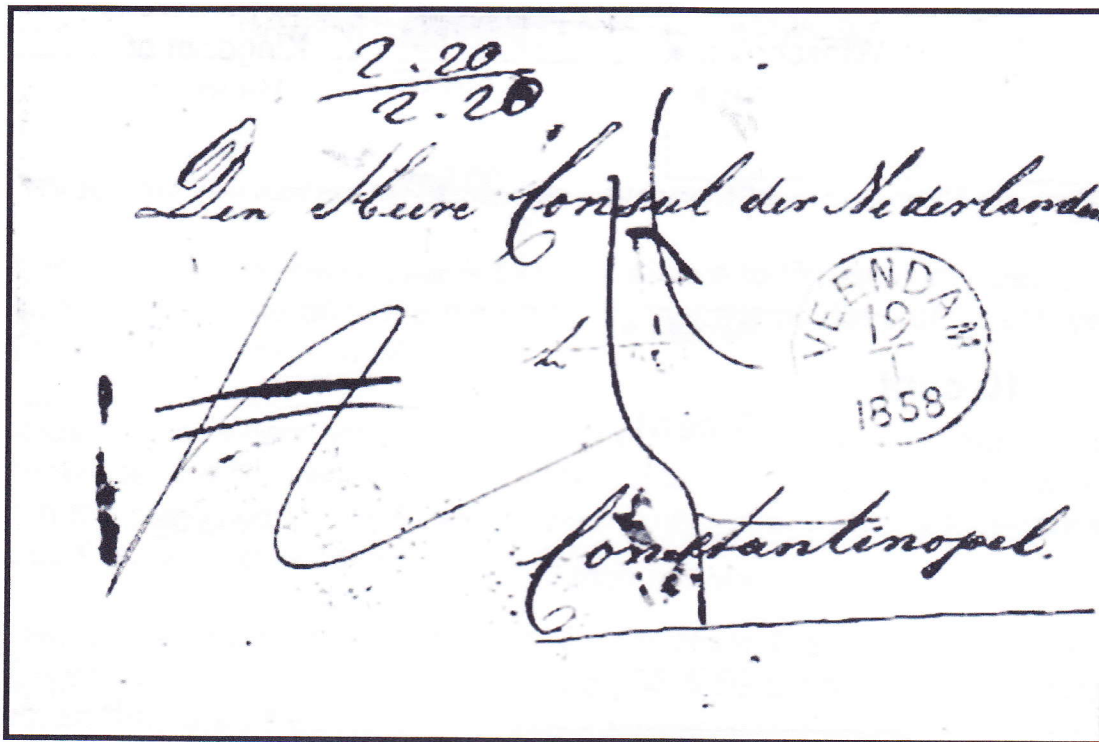 2.20
2.20
Den Heere Consul der Nederlanden
VEENDAM
19
1
1858
Constantinopel.